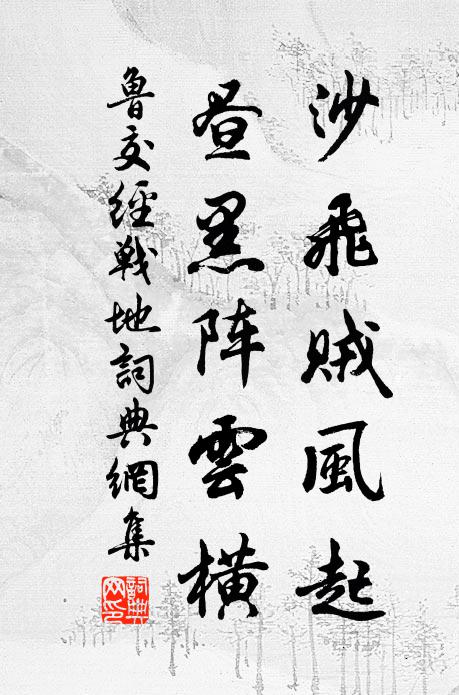 沙飛賊風起
昼黑阵雲橫
魯交經戰地詞典網集
詞典网印